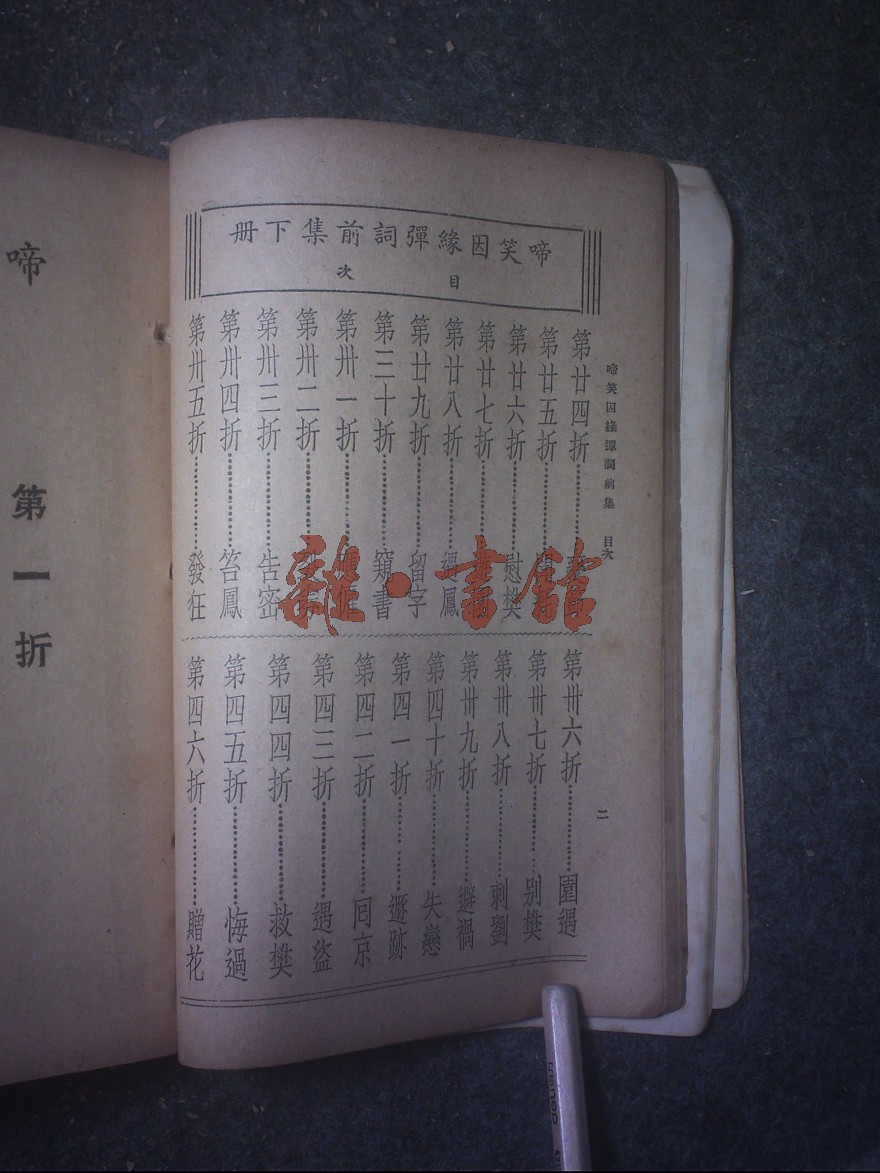 啼笑因緣彈詞前集下册
目次
第廿四折
第廿五折
第廿六折 慰樊
第廿七折
第廿八折 遇鳳
第廿九折 留字
第三十折 窺書
第卅一折
第卅二折
第卅三折 告密
第卅四折 笞鳳
第卅五折 發狂
第卅六折 園遇
第卅七折 别樊
第卅八折 刺劉
第卅九折 避禍
第四十折 失戀
第四一折 遯跡
第四二折 囘京
第四三折 遇盜
第四四折 救樊
第四五折 悔過
第四六折 贈花
啼笑因緣彈詞前集 目次
二
啼
第一折
雜·書館